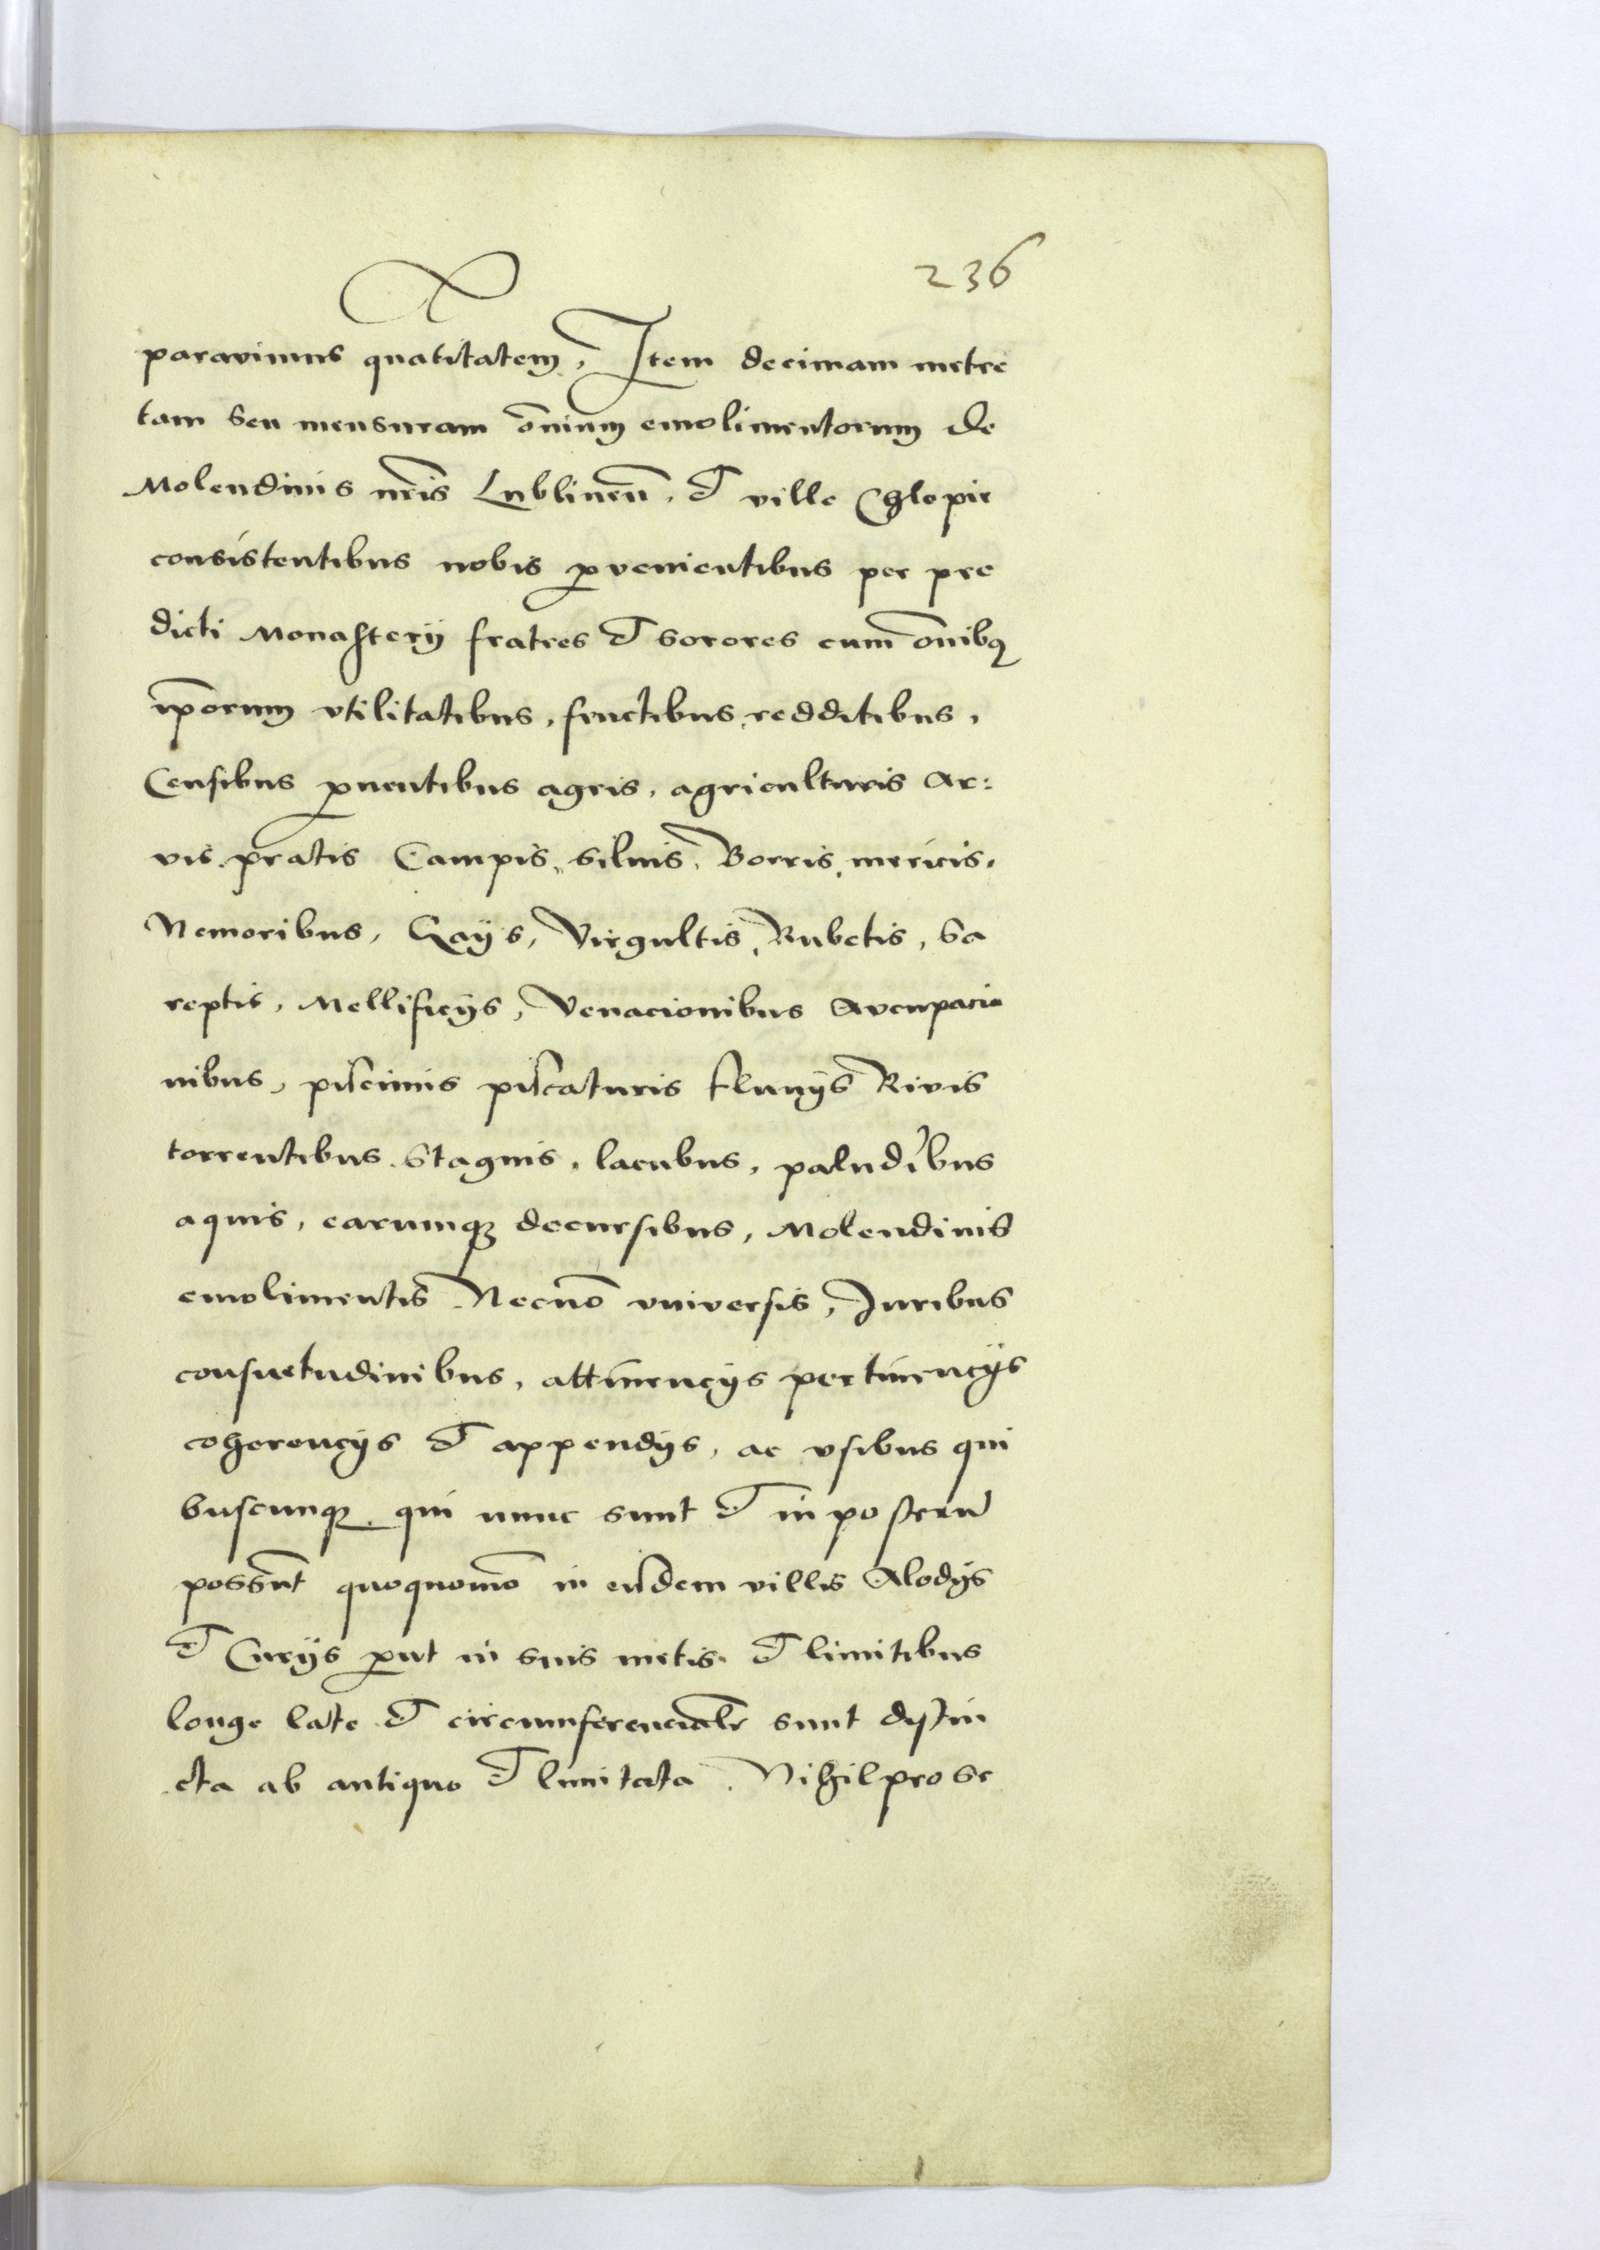 236
paravimus quatitatem, Item decimam metre
tam seu mensuram o̅nium emolimentorum de
Molendinis nr̅is Lublinen̅. et ville Chlopie
consistentibus nobis ꝓvenientibus per pre
dicti Monasterij fratres et sorores cum o̅nibꝫ
ip̅orum vtilitatibus, fructibus, redditibus,
Censibus ꝓuentibus agris, agriculturis Ar:
vis pratis Campis, siluis, Borris, mericis,
Nemoribus, Gaÿs, Virgultis, Rubetis, Sa
reptis, Mellificijs, Venacionibus Aucupacio
nibus, piscinis piscaturis fluuijs Rivis
torrentibus Stagnis, lacubus, paludibus
aquis, earumqꝫ decursibus, Molendinis
emolimentis Necno̅ vniversis, Juribus
consuetudinibus, attinencijs pertinencijs
coherencijs et appendijs, ac vsibus qui
buscunqꝫ qui nunc sunt et in posteru̅
possu̅nt quoquomo̅ in eisdem villis Alodijs
et Curijs ꝓut in suis metis et limitibus
longe late et circumferencialr̅ sunt distin
cta ab antiquo et limitata. Nihil pro se